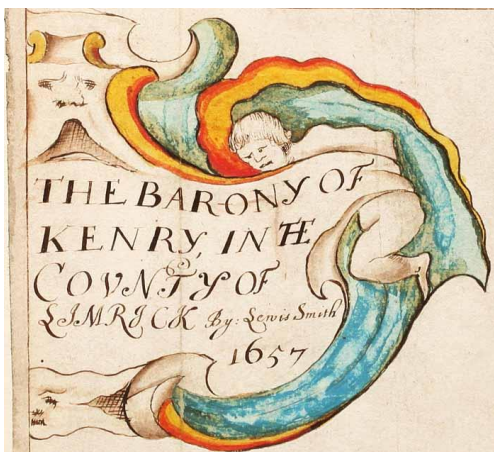 THE BARONY OF
KENRY, IN THE
COVNTY OF
LIMRICK By: Lewis Smith
1657